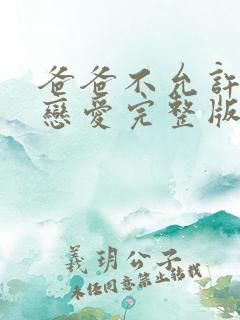 爸爸不允許
戀愛完整版
義玥公子
未任同意禁止轉載